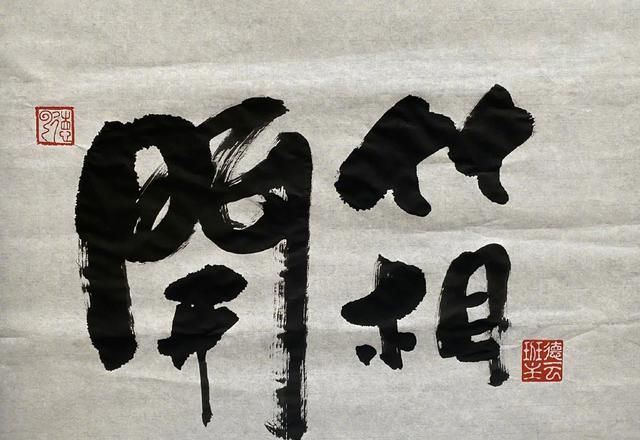 開箱
德云
班主